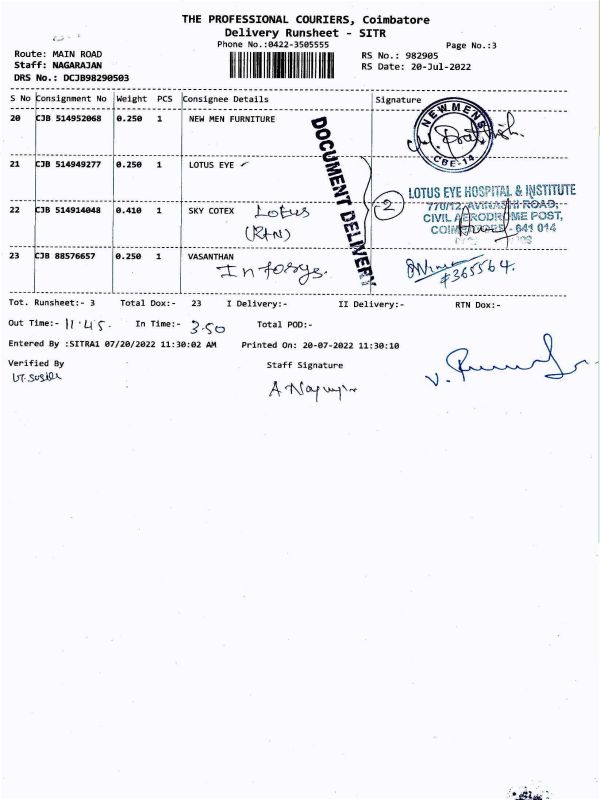 THE PROFESSIONAL COURIERS, Coimbatore
Delivery Runsheet - SITR
Phone No.:0422-3505555
Page No.:3
Route: MAIN ROAD
RS No.: 982905
Staff: NAGARAJAN
RS Date: 20-Jul-2022
DRS No.: DCJB98290503
S No Consignment No Weight PCS Consignee Details Signature
20 CJB 514952068 0.250 1 NEW MEN FURNITURE
NEWMENS
CBE-14
DOCUMENT DELIVERY
21 CJB 514949277 0.250 1 LOTUS EYE
LOTUS EYE HOSPITAL & INSTITUTE
770/12, AVINASHI ROAD,
CIVIL AERODROME POST,
COIMBATORE - 641 014
22 CJB 514914048 0.410 1 SKY COTEX Lotus
(RTN)
2
23 CJB 88576657 0.250 1 VASANTHAN
Inforgs.
#365564.
Tot. Runsheet:- 3 Total Dox:- 23 I Delivery:- II Delivery:- RTN Dox:-
Out Time:- 11.45. In Time:- 3.50 Total POD:-
Entered By :SITRA1 07/20/2022 11:30:02 AM Printed On: 20-07-2022 11:30:10
Verified By Staff Signature